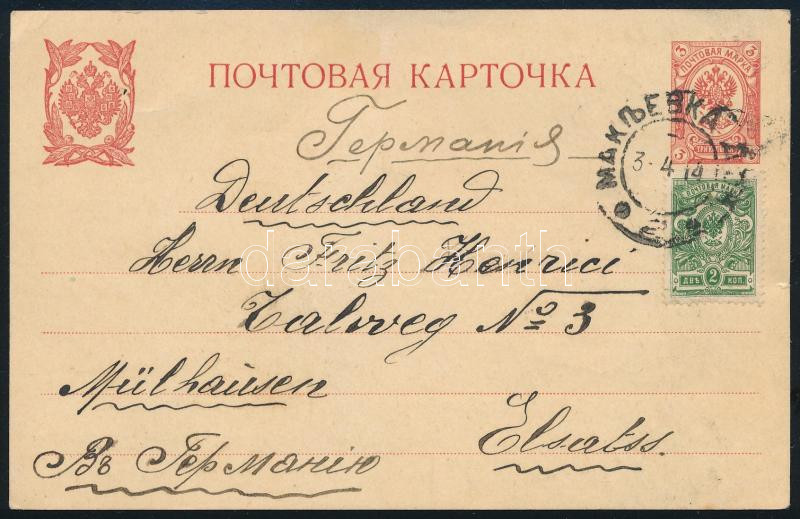 ПОЧТОВАЯ КАРТОЧКА
3 3
ПОЧТОВАЯ МАРКА
Германія
МАКѢЕВКА
3-4 14
Deutschland
Herrn Fritz Henrici
Talweg No 3
ПОЧТОВАЯ МАРКА
2
ДВѢ КОП.
Mülhausen
Elsatss.
Въ Германію
darabanth